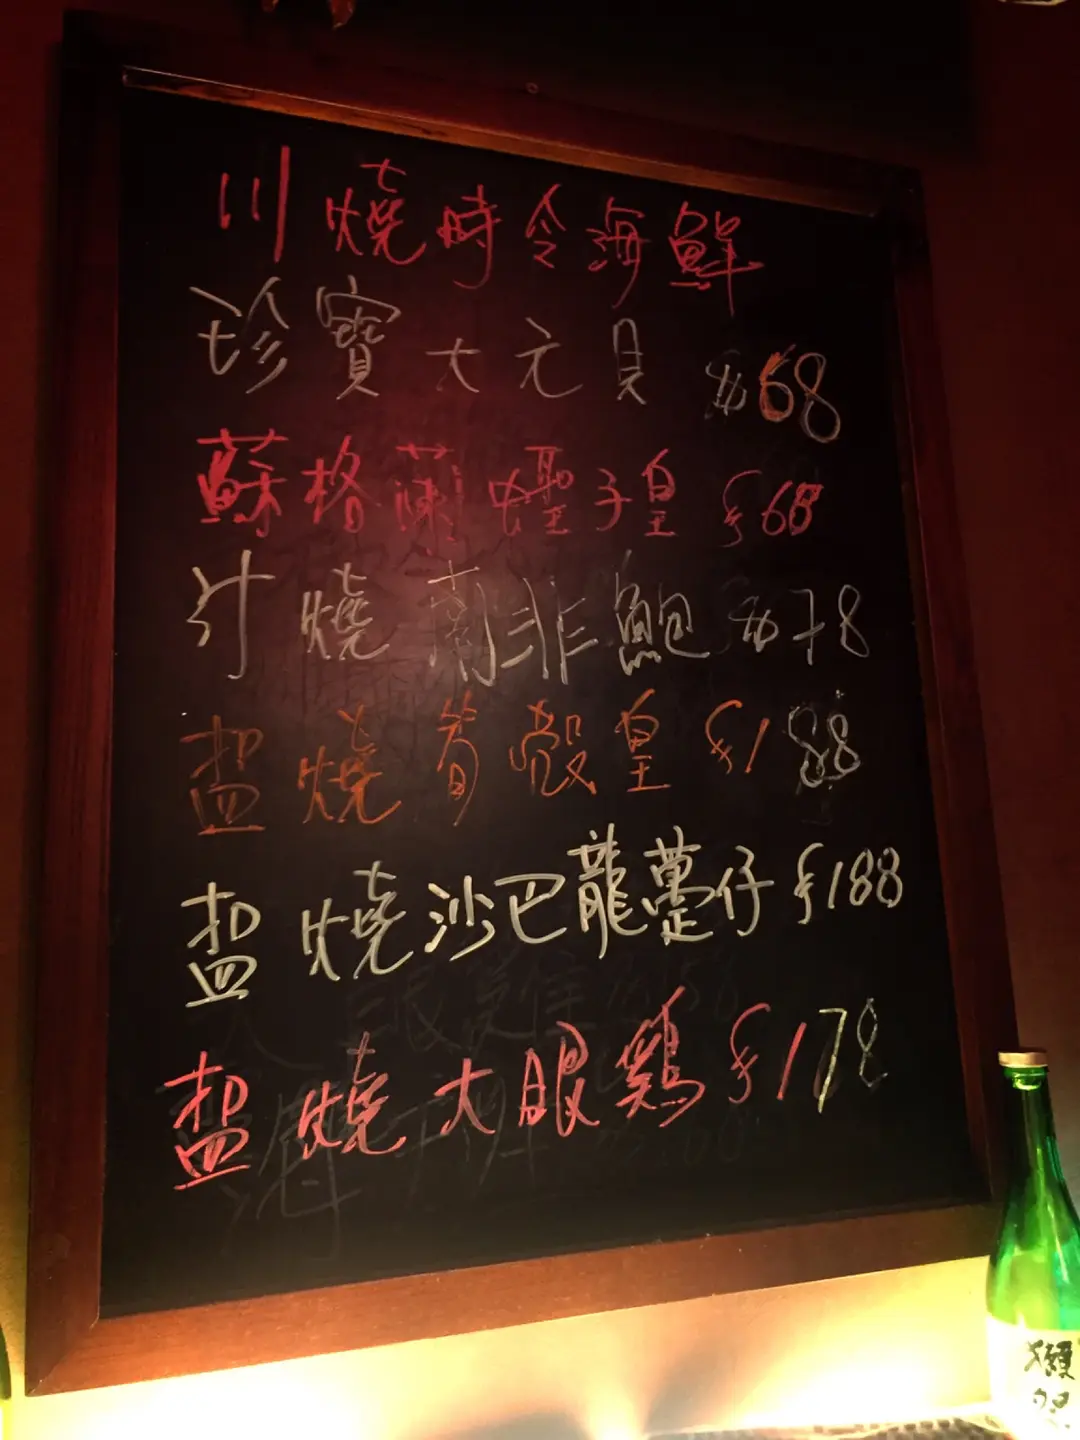 川燒時令海鮮
珍寶大元貝 $68
蘇格蘭蟶子皇 $68
汁燒南非鮑 $78
盐燒筍殼皇 $188
盐燒沙巴龍躉仔 $188
盐燒大眼鷄 $178
獺祭